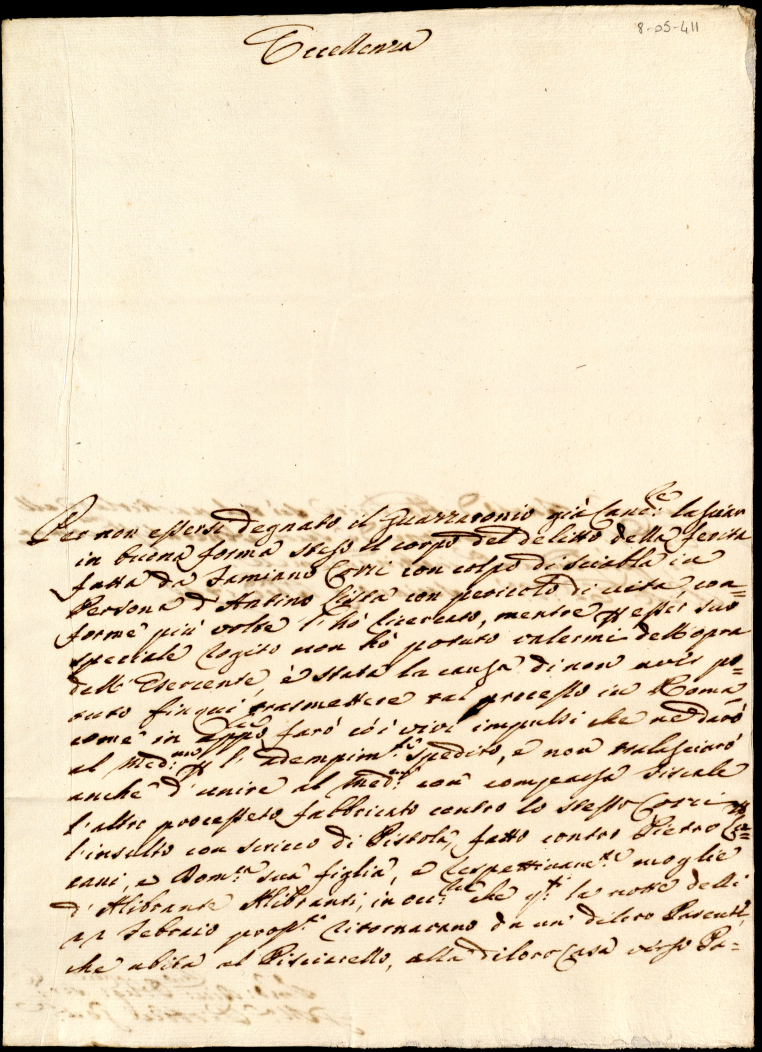 8-05-411
Eccellenza
Per non essersi degnato il Guazzaronio già Canc.re lasciar
in buona forma steso il corpo del delitto della ferita
fatta da Damiano Corsi con colpo di sciabla in
Persona d'Antino con pericolo di vita, con=
forme più volte l'hò ricercato, mentre p esser suo
speciale rogito non hò potuto valermi dell'opra
dell'Esercente, è stata la causa di non aver po=
tuto finqui trasmettere tal processo in Roma
come in app.o farò cò i vivi impulsi che ne darò
al Med.mo p l'adempim.to spedito, e non tralasciarò
anche d'unire al Med.mo con compensa fiscale
l'altro processetto fabbricato contro lo stesso Corsi p
l'insulto con scricco di Pistola, fatto contro Pietro
tani, e Dom.ca sua figlia, e respettivam.te moglie
d'Alibrante Alibranti, in occ.ne che q.ti la notte delli
Febraio prop.o ritornavano da un diloro Parente,
che abita al Pisciarello, alla diloro Casa verso Pa=